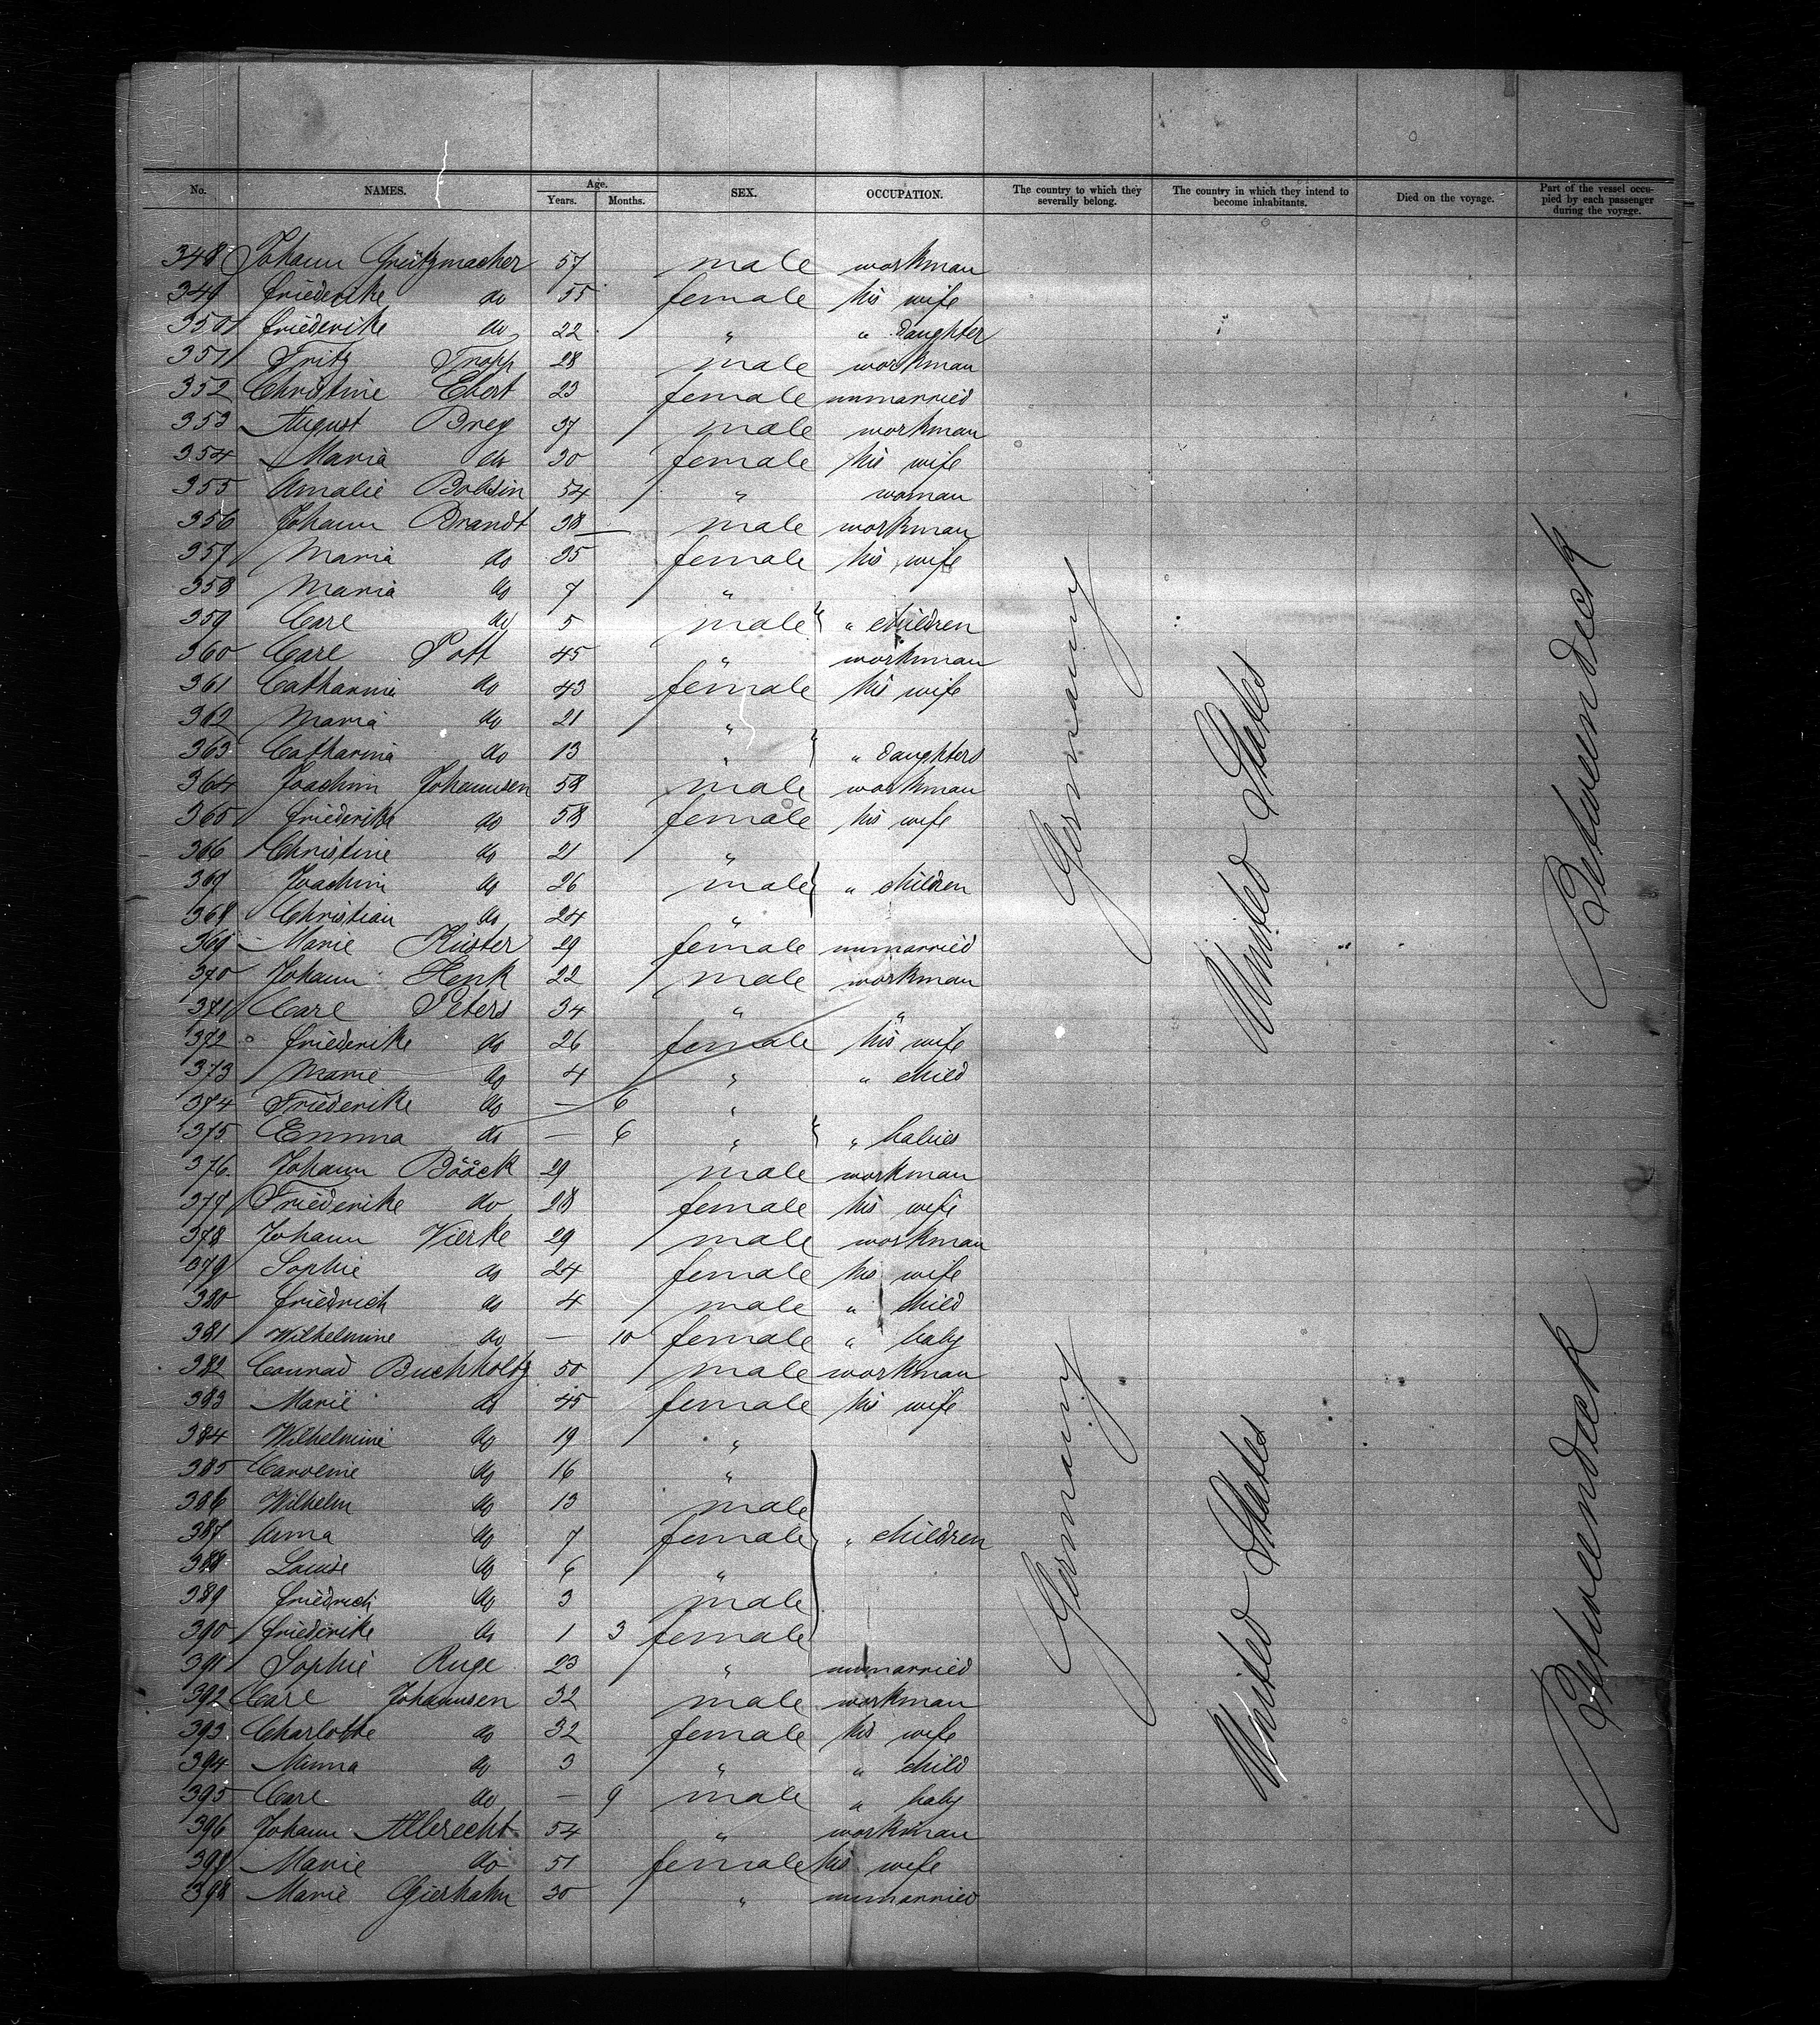 No. NAMES. Age. Years. Months. SEX. OCCUPATION. The country to which they severally belong. The country in which they intend to become inhabitants. Died on the voyage. Part of the vessel occupied by each passenger during the voyage.
348 Johann Grützmacher 57 male workman
349 Friederike do 55 female his wife
350 Friederike do 22 " " daughter
351 Fritz Tropp 28 male workman
352 Christine Ebert 23 female unmarried
353 August Breg 37 male workman
354 Maria do 30 female his wife
355 Amalie Bobsin 54 " woman
356 Johann Brandt 38 male workman
357 Maria do 35 female his wife
358 Maria do 7 "
359 Carl do 5 male " children
360 Carl Pott 45 " workman
361 Catharina do 43 female his wife
362 Maria do 21 "
363 Catharina do 13 " " daughters
364 Joachim Johannsen 58 male workman
365 Friederike do 58 female his wife
366 Christine do 21 "
367 Joachim do 26 male " children
368 Christian do 24 "
369 Marie Küster 29 female unmarried
370 Johann Henk 22 male workman
371 Carl Peters 34 " "
372 Friederike do 26 female his wife
373 Marie do 4 " " child
374 Friederike do — 6 "
375 Emma do — 6 " " babies
376. Johann Bööck 29 male workman
377 Friederike do 28 female his wife
378 Johann Vierke 29 male workman
379 Sophie do 24 female his wife
380 Friedrich do 4 male " child
381 Wilhelmine do — 10 female " baby
382 Conrad Buchholtz 50 male workman
383 Marie do 45 female his wife
384 Wilhelmine do 19 "
385 Caroline do 16 "
386 Wilhelm do 13 male
387 Anna do 7 female " children
388 Louise do 6 "
389 Friedrich do 3 male
390 Friederike do 1 3 female
391 Sophie Ruge 23 " unmarried
392 Carl Johannsen 32 male workman
393 Charlotte do 32 female his wife
394 Minna do 3 " " child
395 Carl do — 9 male " baby
396 Johann Albrecht 54 " workman
397 Marie do 51 female his wife
398 Marie Gierhahn 30 " unmarried
Germany
United States
Betweendeck
Germany
United States
Betweendeck